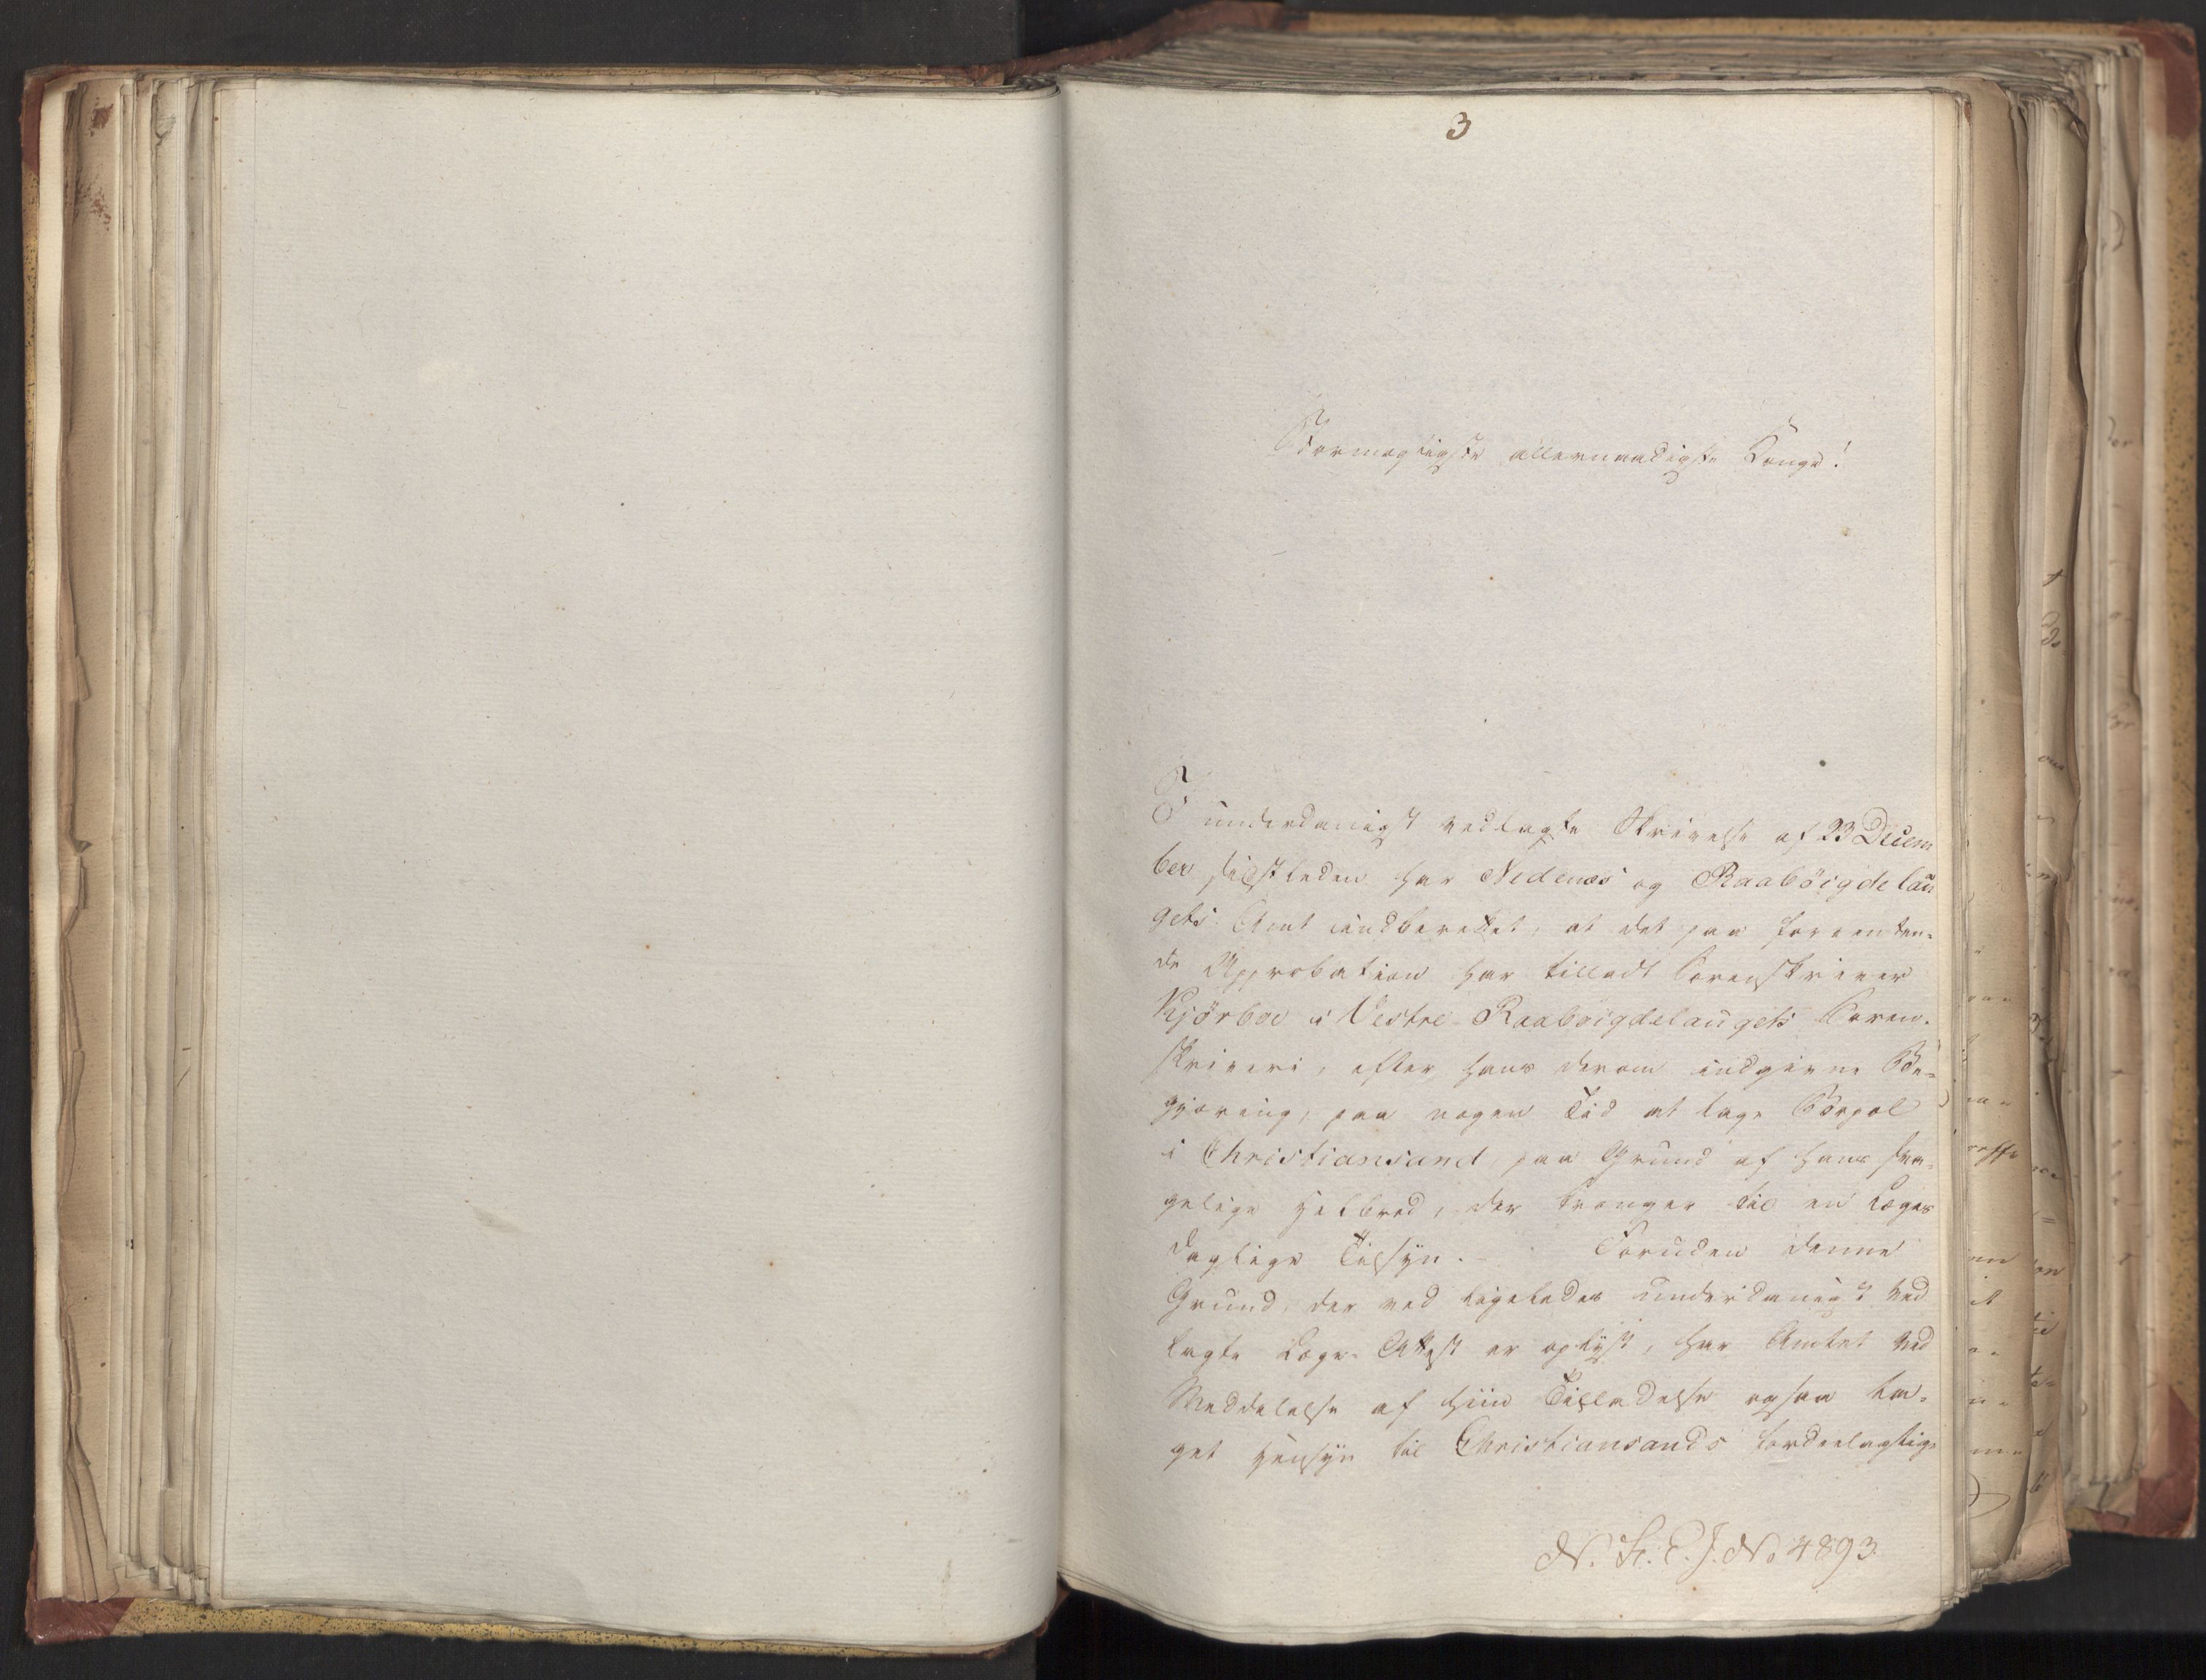 3
Stormægtigste allernaadigste Konge!
I underdanigst vedlagte Skrivelse af 23 Decem
ber sidstleden har Nedenæs og Raaböigdelau
gets Amt indberettet, at det paa forventen-
de Approbation har tilladt Sorenskriver
Kjörboe i Vestre Raaböigdelaugets Soren-
skriveri, efter hans derom indgivne Be-
gjæring, paa nogen Tid at tage Bopæl
i Christiansand, paa Grund af hans sva-
gelige Helbred, der trænger til en Læges
daglige Tilsyn. - Foruden denne
Grund, der ved ligeledes underdanigst ved
lagte Læge-Attest er oplyst, har Amtet ved
Meddelelse af hiin Tilladelse ogsaa ta-
get Hensyn til Christiansands fordeelagtige
N. H. C. J. No 4893.